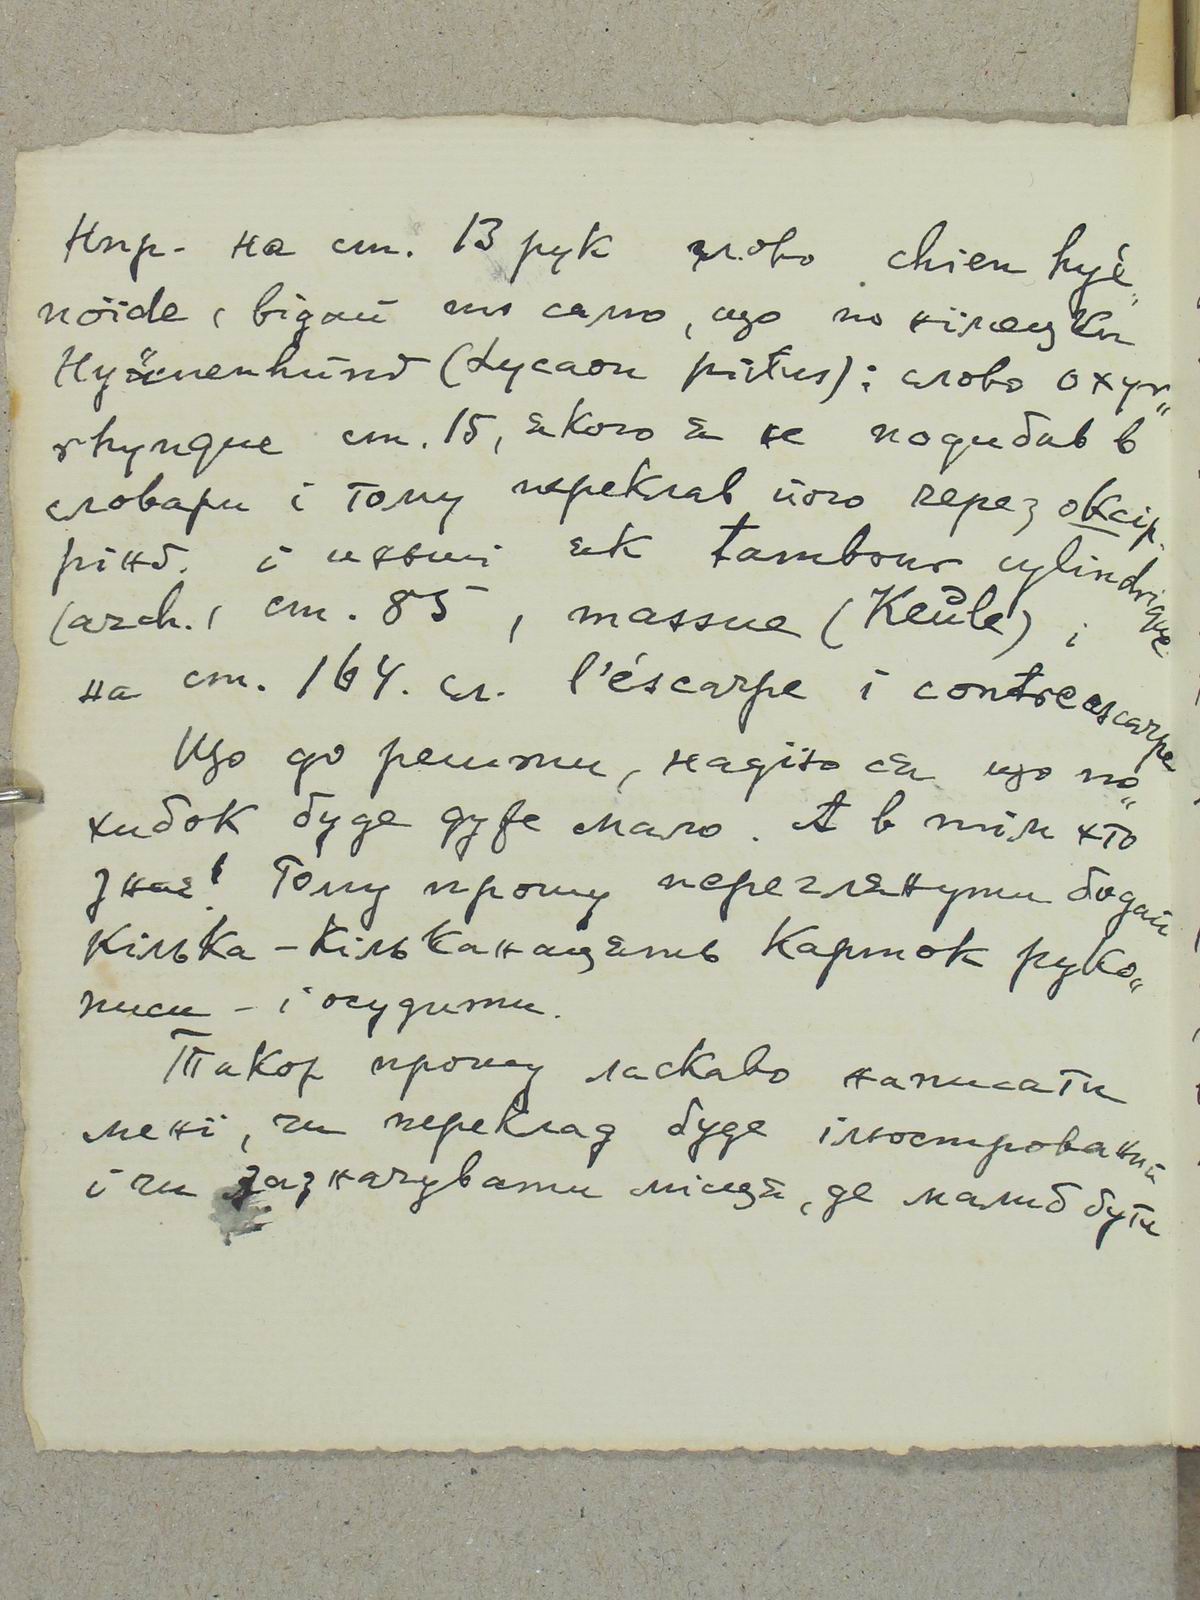 Нпр. на ст. 13 рук слово chien hyé„
noïde, відай то само, що по німецьки
Hyänenhund (Lycaon pictus); слово oxyr„
rhynque ст. 15, якого я не подибав в
словари і тому переклав його через оксір.
рінх. і иньші як tambour cylindrique
(arch., ст. 85, massue (Keule) і
на ст. 164. сл. l'éscarpe і contreescarpe
Що до решти, надїю ся що по„
хибок буде дуже мало. А в тім хто
знає! Тому прошу переглянути бодай
кілька – кільканацять карток руко„
писи – і осудити.
Також прошу ласкаво написати
менї, чи переклад буде ілюстрований
і чи зазначувати місця, де малиб бути